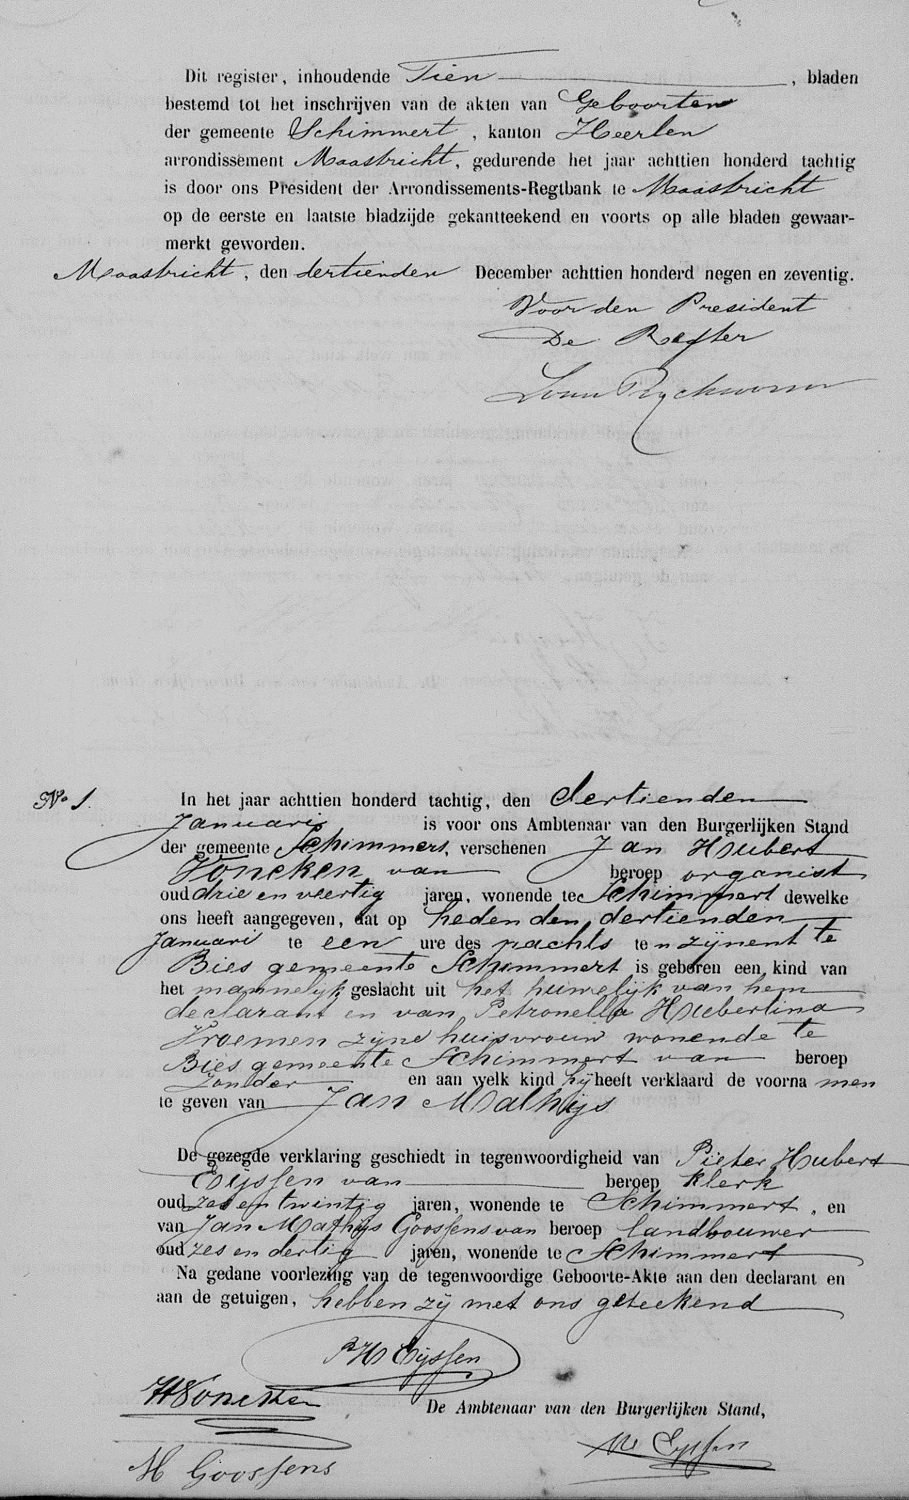 Dit register, inhoudende Tien, bladen
bestemd tot het inschrijven van de akten van Geboorten
der gemeente Schimmert, kanton Heerlen
arrondissement Maastricht, gedurende het jaar achttien honderd tachtig
is door ons President der Arrondissements-Regtbank te Maastricht
op de eerste en laatste bladzijde gekantteekend en voorts op alle bladen gewaar-
merkt geworden.
Maastricht, den dertienden December achttien honderd negen en zeventig.
Voor den President
De Regter
No 1.
In het jaar achttien honderd tachtig, den dertienden
Januari is voor ons Ambtenaar van den Burgerlijken Stand
der gemeente Schimmert, verschenen Jan Hubert
Voncken van beroep organist
oud drie en veertig jaren, wonende te Schimmert dewelke
ons heeft aangegeven, dat op heden den dertienden
Januari te een ure des nachts te n zijnent te
Bies gemeente Schimmert is geboren een kind van
het mannelijk geslacht uit het huwelijk van hem
declarant en van Petronella Hubertina
Vroemen zijne huisvrouw wonende te
Bies gemeente Schimmert van beroep
zonder en aan welk kind hij heeft verklaard de voorna men
te geven van Jan Mathijs
De gezegde verklaring geschiedt in tegenwoordigheid van Pieter Hubert
Eijssen van beroep klerk
oud zes en twintig jaren, wonende te Schimmert, en
van Jan Mathijs Goossens van beroep landbouwer
oud zes en dertig jaren, wonende te Schimmert
Na gedane voorlezing van de tegenwoordige Geboorte-Akte aan den declarant en
aan de getuigen, hebben zij met ons geteekend
PH Eijssen
JH Voncken
De Ambtenaar van den Burgerlijken Stand,
M Goossens
Eijssen